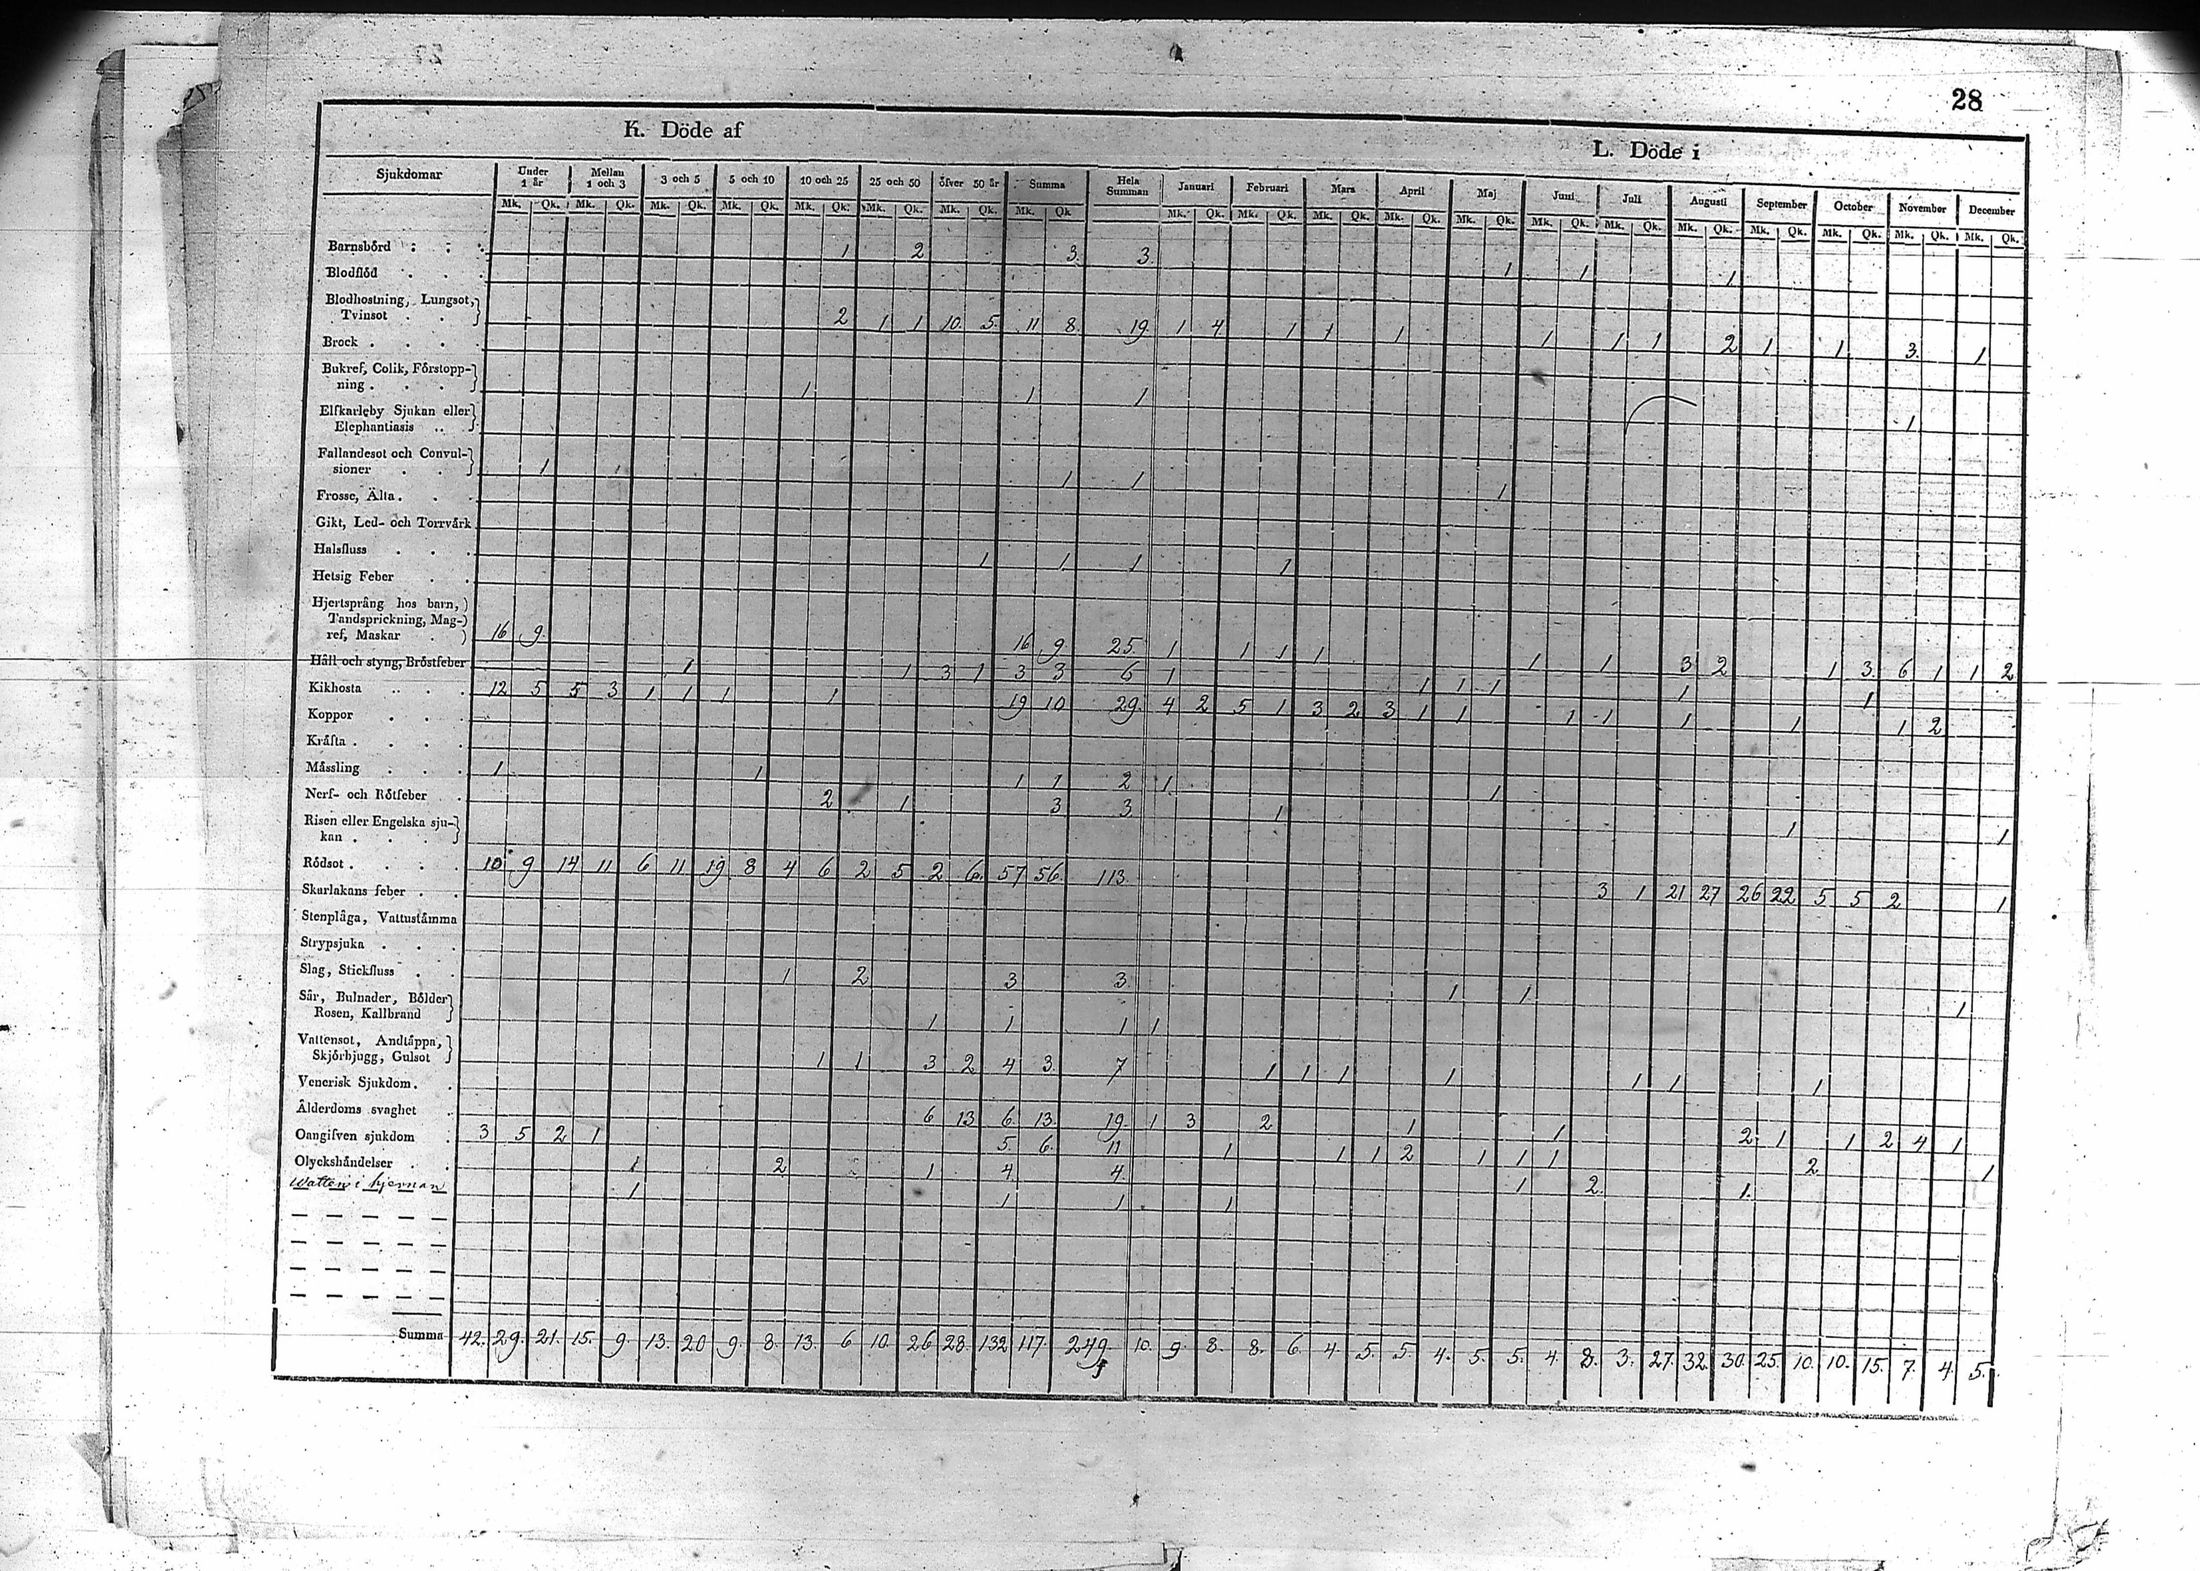 28
K. Döde af
L. Döde i
Sjukdomar Under 1 år Mellan 1 och 3 3 och 5 5 och 10 10 och 25 25 och 50 öfver 50 år Summa Hela Summan Januari Februari Mars April Maj Juni Juli Augusti September October November December
Mk. Qk. Mk. Qk. Mk. Qk. Mk. Qk. Mk. Qk. Mk. Qk. Mk. Qk. Mk. Qk Mk. Qk. Mk. Qk. Mk. Qk. Mk. Qk. Mk. Qk. Mk. Qk. Mk. Qk. Mk. Qk. Mk. Qk. Mk. Qk. Mk. Qk. Mk. Qk.
Barnsbörd 1 2 3. 3. 1 1 1
Blodflöd
Blodhostning, Lungsot,
Tvinsot 2 1 1 10. 5. 11 8. 19. 1 4 1 1 1 1 1 1 2 1 1 3. 1
Brock
Bukref, Colik, Förstopp-
ning 1 1 1 1
Elfkarleby Sjukan eller
Elephantiasis
Fallandesot och Convul-
sioner 1 1 1 1
Frosse, Älta
Gikt, Led- och Torrvärk
Halsfluss 1 1 1 1
Hetsig Feber
Hjertsprång hos barn,
Tandsprickning, Mag-
ref, Maskar 16 9. 16 9. 25. 1 1 1 1 1 1 3 2 1 3. 6 1 1 2
Håll och styng, Bröstfeber 1 1 3 1 3 3 6 1 1 1 1 1 1
Kikhosta 12 5 5 3 1 1 1 1 19 10 29. 4 2 5 1 3 2 3 1 1 1 1 1 1 1 2
Koppor
Kräfta
Mässling 1 1 1 1 2 1 1
Nerf- och Rötfeber 2 1 3 3 1 1 1
Risen eller Engelska sju-
kan
Rödsot 10 9 14 11 6 11 19 8 4 6 2 5 2 6. 57 56 113. 3 1 21 27 26 22 5 5 2 1
Skarlakans feber
Stenplåga, Vattustämma
Strypsjuka
Slag, Stickfluss 1 2 3 3. 1 1 1
Sår, Bulnader, Bölder
Rosen, Kallbrand 1 1 1 1
Vattensot, Andtäppa,
Skjörbjugg, Gulsot 1 1 3 2 4 3. 7 1 1 1 1 1 1 1
Venerisk Sjukdom
Ålderdoms svaghet 6 13 6. 13. 19. 1 3 2 1 1 2 1 1 2 4 1
Oangifven sjukdom 3 5 2 1 5. 6. 11 1 1 1 2 1 1 1 2 1
Olyckshändelser 1 2 1 4 4. 1 2. 1.
Watten i hjernan 1 1 1 1
Summa 42. 29. 21. 15. 9. 13. 20 9. 8. 13. 6 10. 26 28. 132 117. 249. 10. 9. 8. 8. 6. 4. 5. 5. 4. 5. 5. 4. 8. 3. 27. 32. 30. 25. 10. 10. 15. 7. 4. 5.